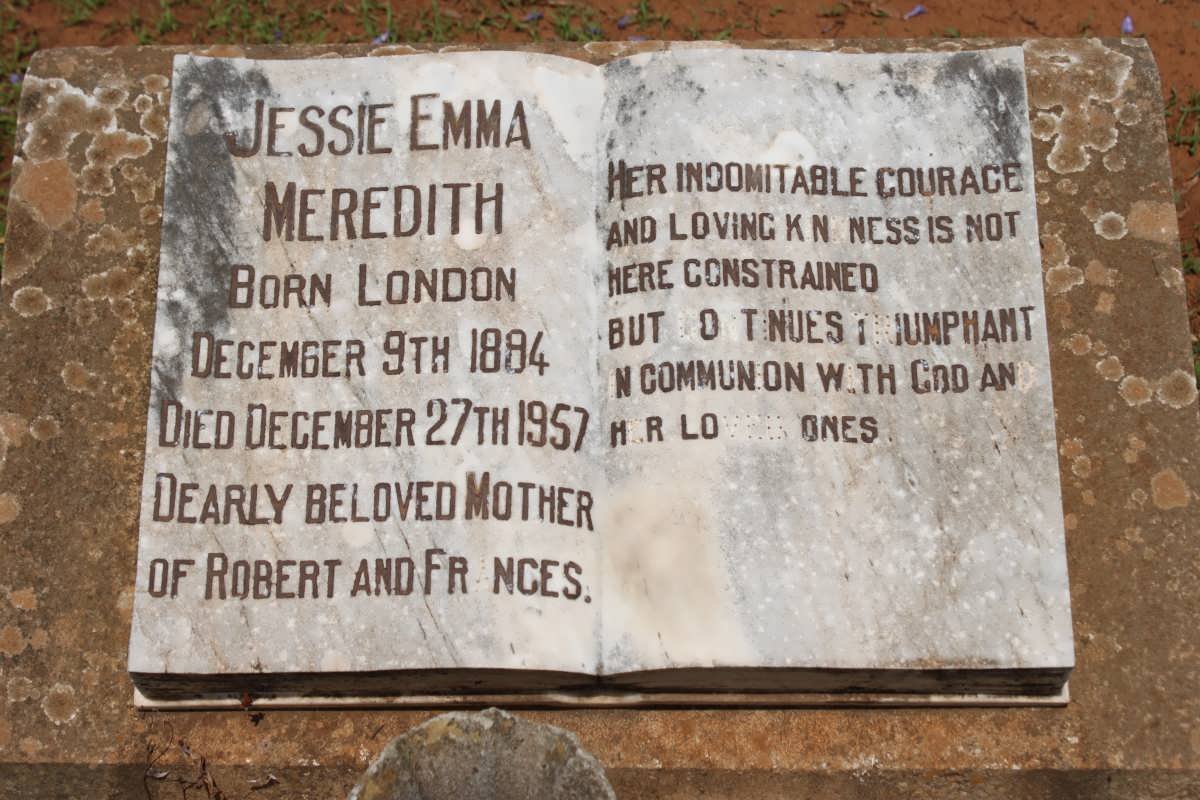 JESSIE EMMA
MEREDITH
BORN LONDON
DECEMBER 9TH 1884
DIED DECEMBER 27TH 1957
DEARLY BELOVED MOTHER
OF ROBERT AND FRANCES.
HER INDOMITABLE COURAGE
AND LOVING KINDNESS IS NOT
HERE CONSTRAINED
BUT CONTINUES TRIUMPHANT
IN COMMUNION WITH GOD AND
HER LOVED ONES.